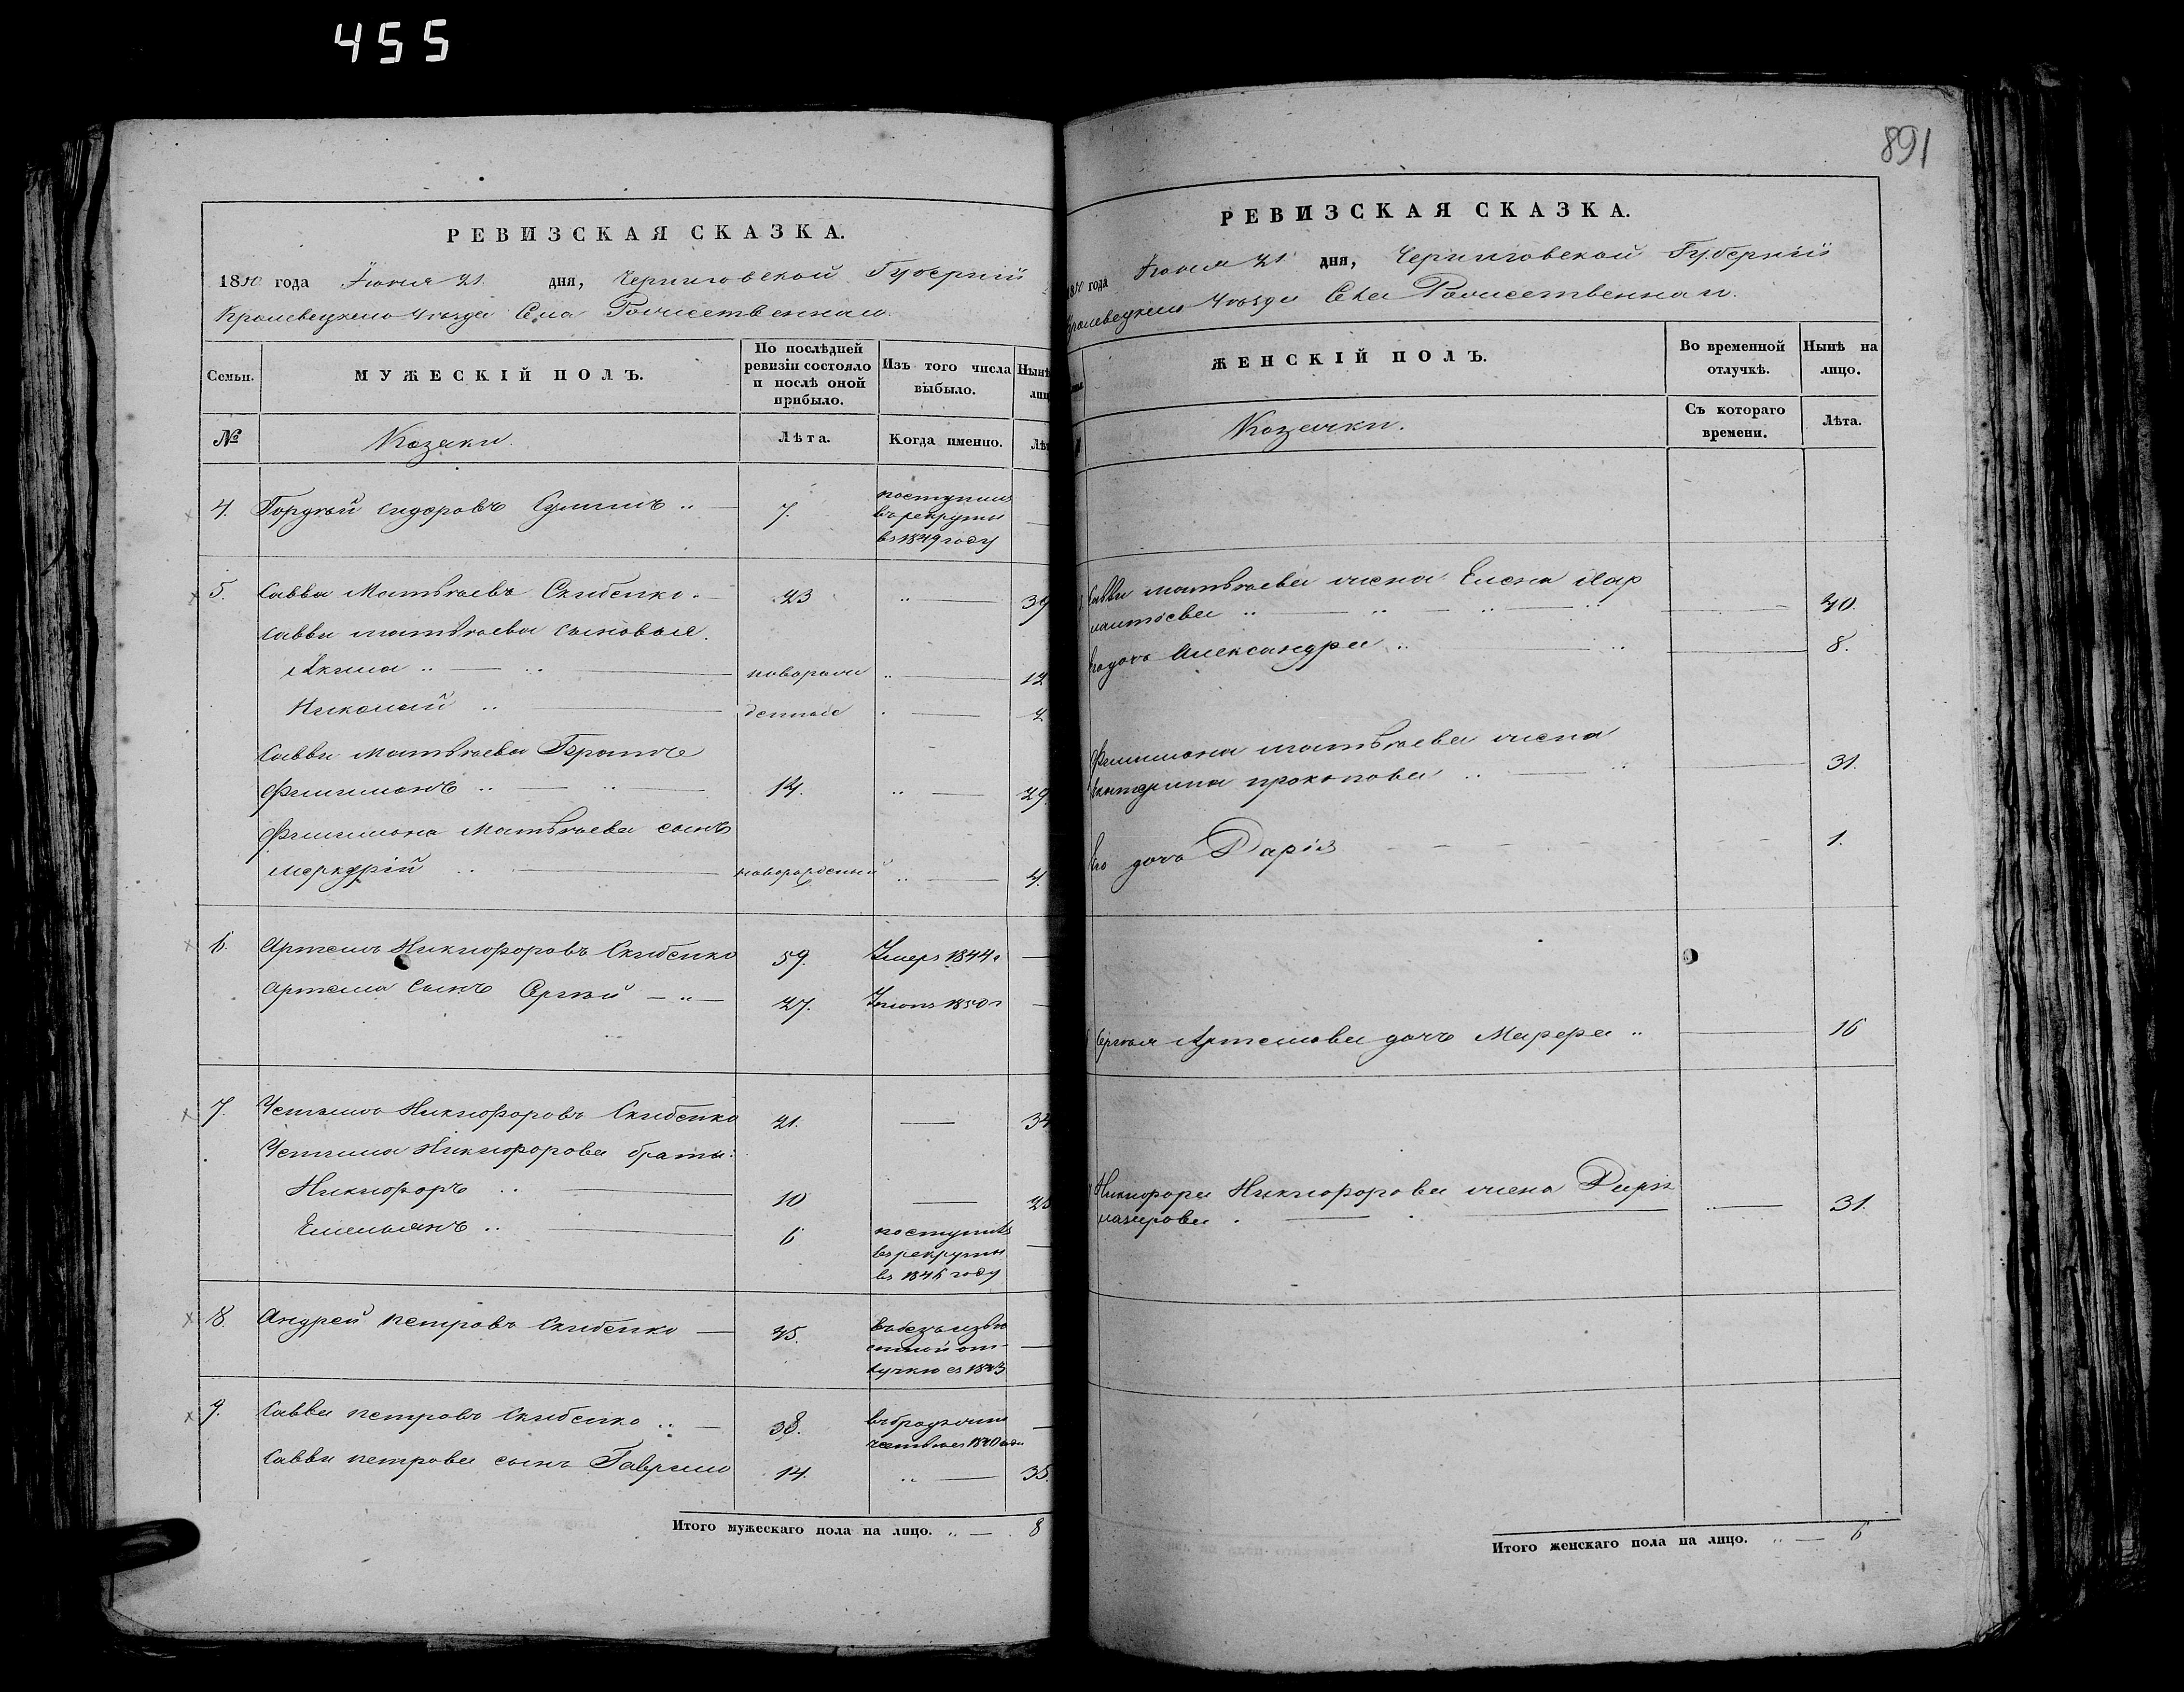 455
891
РЕВИЗСКАЯ СКАЗКА.
1850 года Іюня 21 дня, Черниговской Губерніи
Кролевецкаго Уѣзда Села Рожественнаго.
Семьи.
МУЖЕСКІЙ ПОЛЪ.
По послѣдней ревизіи состояло и послѣ оной прибыло.
Изъ того числа выбыло.
Нынѣ
лиц
№
Козаки.
Лѣта.
Когда именно.
Лѣт
4. Гордѣй Сидоровъ 7. поступилъ
въ рекруты
въ 1849 году
5. Савва Матвѣевъ Скибенко 23 39
Саввы Матвѣева сыновья.
Акимъ новорож 12
Николай денные 2
Саввы Матвѣева Братъ
Филимонъ 14. 29
Филимона Матвѣева сынъ
Меркурій новорожденный 4.
6. Артемъ Никифоровъ Скибенко 59. Умеръ 1844
Артема сынъ Сергѣй 27. 1850
7. Устимъ Никифоровъ Скибенко 21. 34
Устима Никифорова братья:
Никифоръ 10
Емельянъ 6 поступилъ
въ рекруты
въ 1846 году
8. Андрей Петровъ Скибенко 45. въ безъизвѣ
стной от
лучкѣ съ 1843
9. Савва Петровъ Скибенко 38. въ бродяжни
чествѣ съ 1840 года
Саввы Петрова сынъ Гаврило 14. 35.
Итого мужескаго пола на лицо. 8
РЕВИЗСКАЯ СКАЗКА.
1850 года Іюня 21 дня, Черниговской Губерніи
Кролевецкаго Уѣзда Села Рожественнаго.
ЖЕНСКІЙ ПОЛЪ.
Во временной отлучкѣ.
Нынѣ на лицо.
Козачки.
Съ котораго времени.
Лѣта.
Саввы Матвѣева жена Елена Хар
лампіева 40.
Его дочь Александра 8.
Филимона Матвѣева жена
Екатерина Прокопова 31.
Его дочь Дарія 1.
Сергѣя Артемова дочь Марфа 16
Никифора Никифорова жена Дарія
Назарова 31.
Итого женскаго пола на лицо. 6